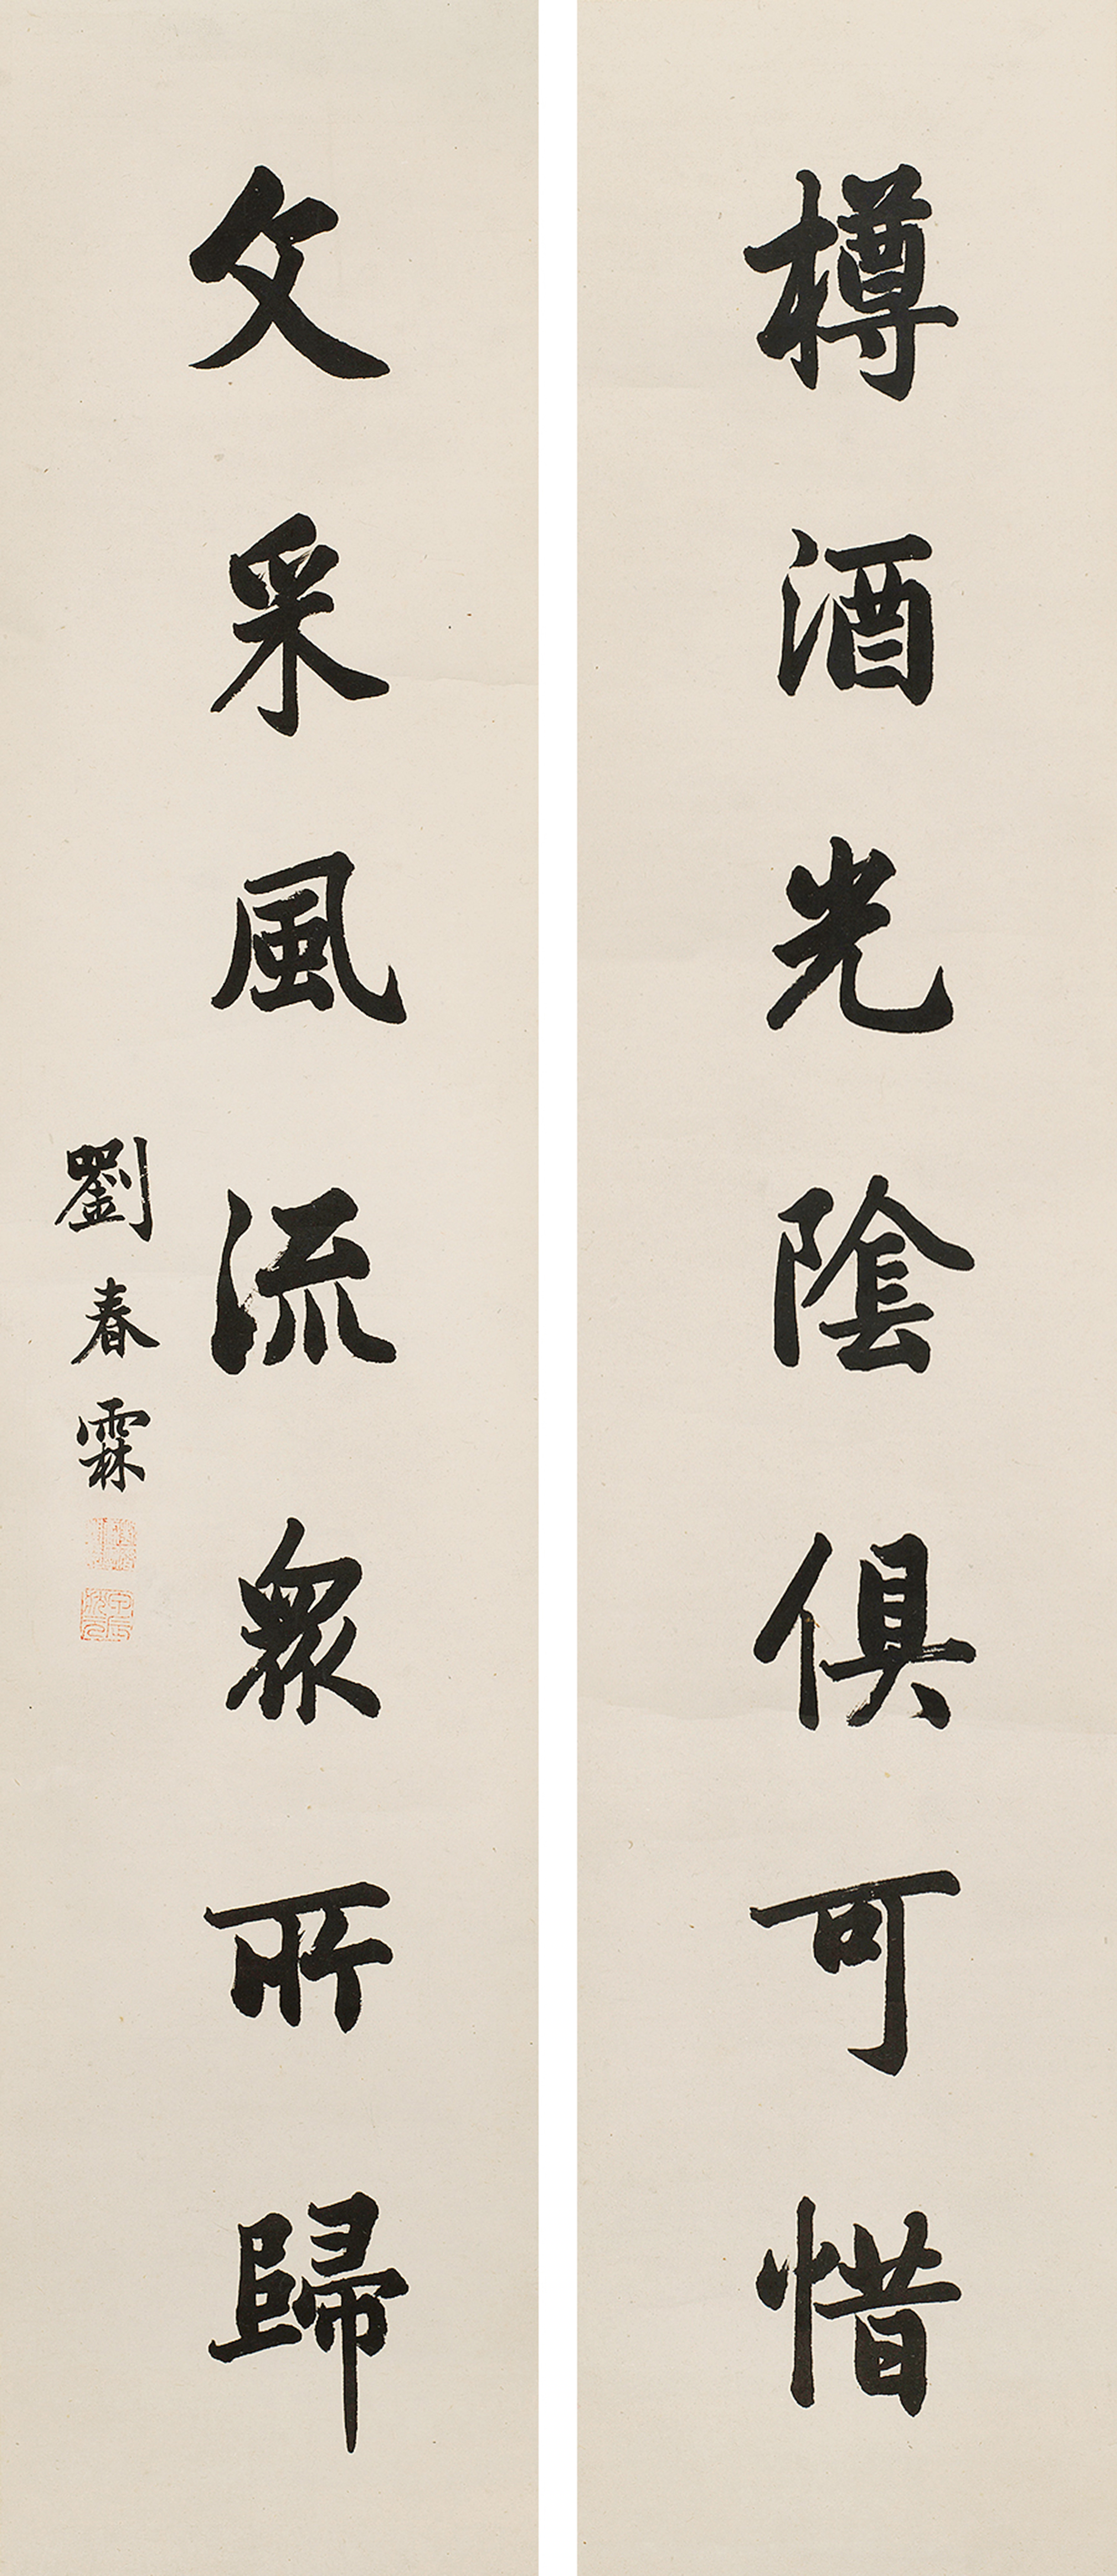 樽酒光陰俱可惜
文采風流眾所歸
劉春霖